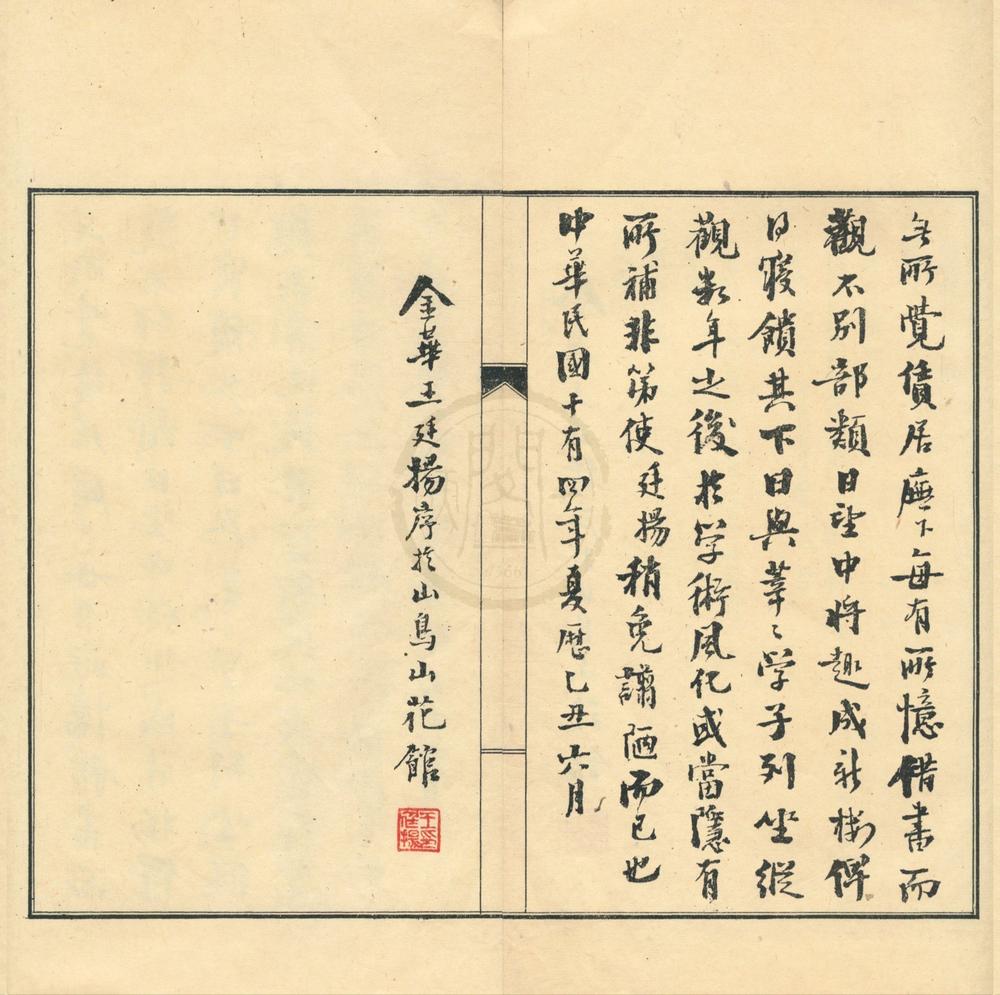 無所覺賃居廡下每有所憶借書而
觀不別部類日望中將趣成新俾
日寢饋其下日與莘〻學子列坐縱
觀數年之後於學術風化或當隱有
所補非第使廷揚稍免謭陋而已也
中華民國十有四年夏歷乙丑六月
金華王廷揚序於山鳥山花館
王印廷揚